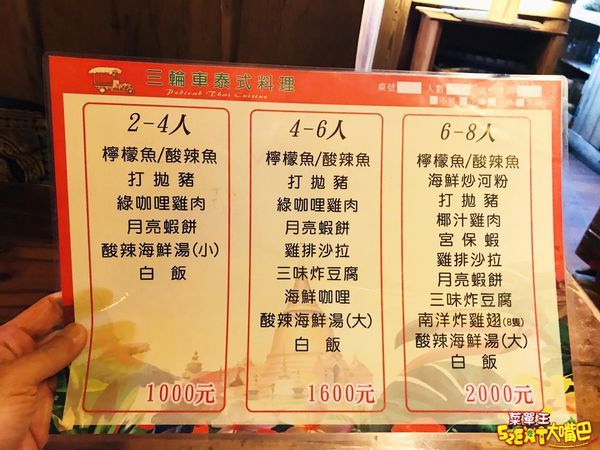 三輪車泰式料理
Pedicab Thai Cuisine
桌號
人數
2-4人
檸檬魚/酸辣魚
打拋豬
綠咖哩雞肉
月亮蝦餅
酸辣海鮮湯(小)
白飯
1000元
4-6人
檸檬魚/酸辣魚
打拋豬
綠咖哩雞肉
月亮蝦餅
雞排沙拉
三味炸豆腐
海鮮咖哩
酸辣海鮮湯(大)
白飯
1600元
6-8人
檸檬魚/酸辣魚
海鮮炒河粉
打拋豬
椰汁雞肉
宮保蝦
雞排沙拉
月亮蝦餅
三味炸豆腐
南洋炸雞翅(8隻)
酸辣海鮮湯(大)
白飯
2000元
菜單王
大嘴巴